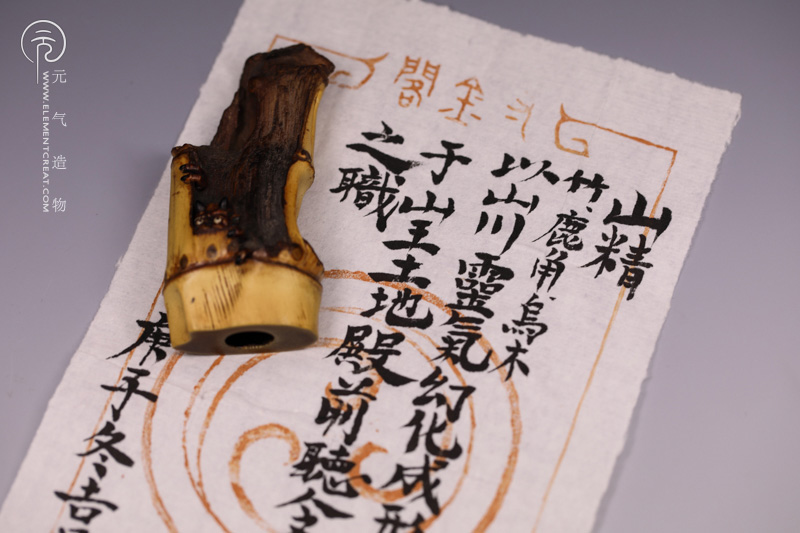 金閣
山精
竹、鹿角、烏木
以山川靈氣幻化成形
于山王土地殿前聽
之職
庚子冬吉
元气造物
WWW.ELEMENTCREAT.COM